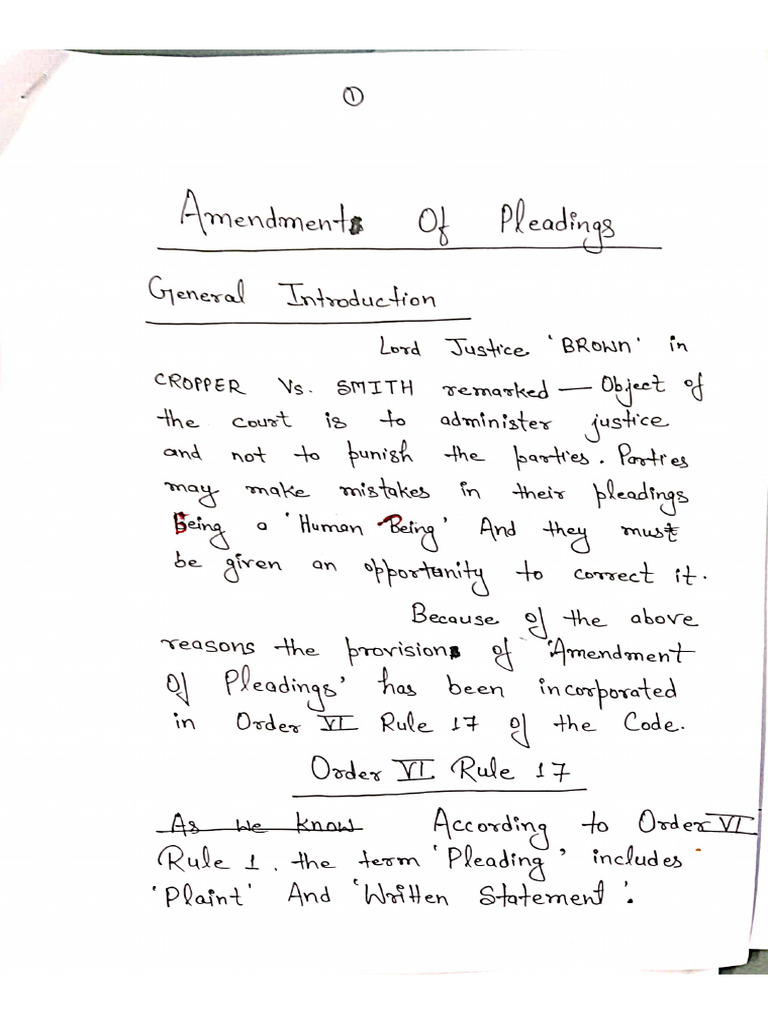 ①
Amendments Of Pleadings
General Introduction
Lord Justice 'BROWN' in
CROPPER Vs. SMITH remarked — Object of
the court is to administer justice
and not to punish the parties. Parties
may make mistakes in their pleadings
Being a 'Human Being' And they must
be given an opportunity to correct it.
Because of the above
reasons the provisions of 'Amendment
Of Pleadings' has been incorporated
in Order VI Rule 17 of the Code.
Order VI Rule 17
As we know According to Order VI
Rule 1. the term 'Pleading' includes
'Plaint' And 'Written Statement'.